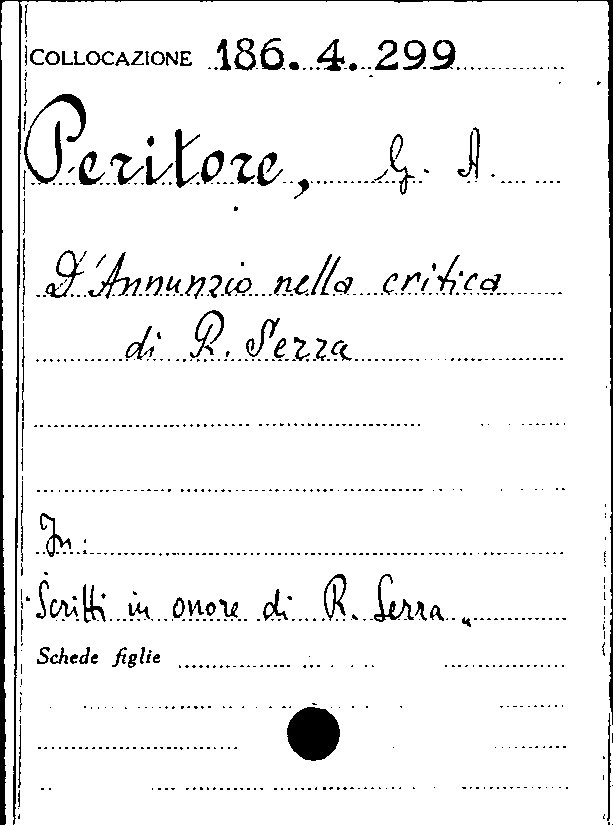 COLLOCAZIONE 186. 4. 299
Peritore, G. A.
D'Annunzio nella critica
di R. Serra
In:
"Scritti in onore di R. Serra"
Schede figlie